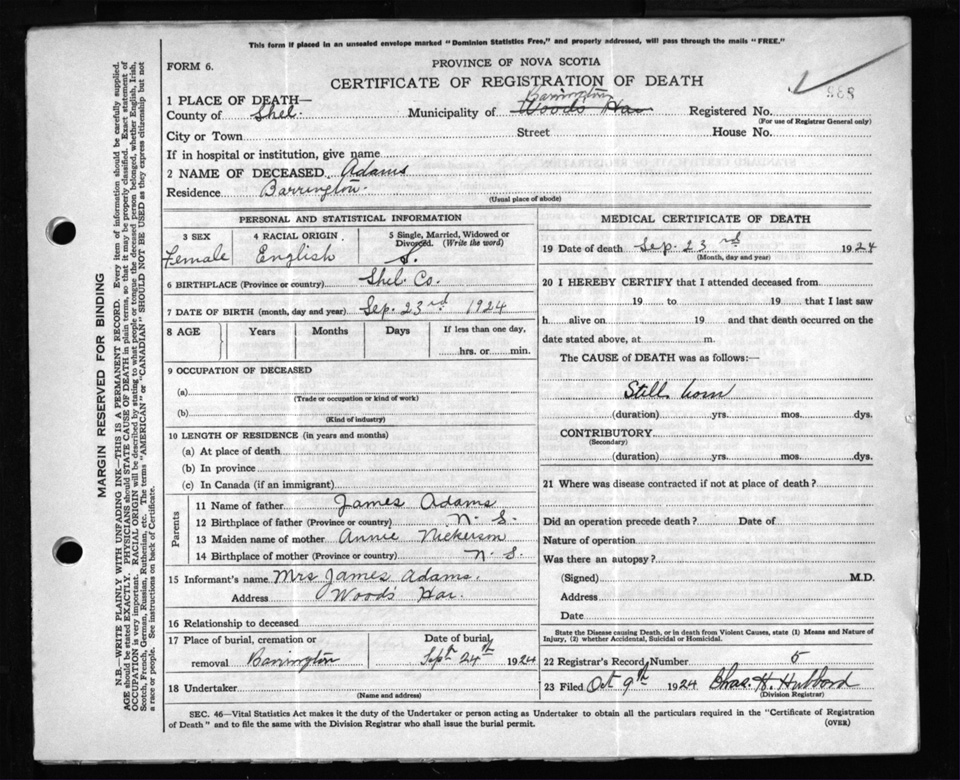 This form if placed in an unsealed envelope marked "Dominion Statistics Free," and properly addressed, will pass through the mails "FREE."
FORM 6.
PROVINCE OF NOVA SCOTIA
CERTIFICATE OF REGISTRATION OF DEATH
1 PLACE OF DEATH—
County of Shel. Municipality of Barrington Woods Har Registered No.
(For use of Registrar General only)
City or Town Street House No.
If in hospital or institution, give name
2 NAME OF DECEASED Adams
Residence Barrington
(Usual place of abode)
PERSONAL AND STATISTICAL INFORMATION
3 SEX 4 RACIAL ORIGIN 5 Single, Married, Widowed or Divorced. (Write the word)
Female English S.
6 BIRTHPLACE (Province or country) Shel Co.
7 DATE OF BIRTH (month, day and year) Sep. 23rd 1924
8 AGE Years Months Days If less than one day,
hrs. or min.
9 OCCUPATION OF DECEASED
(a)
(Trade or occupation or kind of work)
(b)
(Kind of industry)
10 LENGTH OF RESIDENCE (in years and months)
(a) At place of death
(b) In province
(c) In Canada (if an immigrant)
Parents
11 Name of father James Adams
12 Birthplace of father (Province or country) N. S.
13 Maiden name of mother Annie Nickerson
14 Birthplace of mother (Province or country) N. S.
15 Informant's name Mrs James Adams.
Address Woods Har.
16 Relationship to deceased
17 Place of burial, cremation or Date of burial
removal Barrington Sept 24th 1924
18 Undertaker
(Name and address)
MEDICAL CERTIFICATE OF DEATH
19 Date of death Sep. 23rd 1924
(Month, day and year)
20 I HEREBY CERTIFY that I attended deceased from
19 to 19 that I last saw
h alive on 19 and that death occurred on the
date stated above, at m.
The CAUSE of DEATH was as follows:—
Still born
(duration) yrs. mos. dys.
CONTRIBUTORY
(Secondary)
(duration) yrs. mos. dys.
21 Where was disease contracted if not at place of death?
Did an operation precede death? Date of
Nature of operation
Was there an autopsy?
(Signed) M.D.
Address
Date
State the Disease causing Death, or in death from Violent Causes, state (1) Means and Nature of
Injury, (2) whether Accidental, Suicidal or Homicidal.
22 Registrar's Record Number 5
23 Filed Oct 9th 1924 Chas. H. Hubbard
(Division Registrar)
SEC. 46—Vital Statistics Act makes it the duty of the Undertaker or person acting as Undertaker to obtain all the particulars required in the "Certificate of Registration
of Death" and to file the same with the Division Registrar who shall issue the burial permit. (OVER)
MARGIN RESERVED FOR BINDING
N.B.—WRITE PLAINLY WITH UNFADING INK—THIS IS A PERMANENT RECORD. Every item of information should be carefully supplied.
AGE should be stated EXACTLY. PHYSICIANS should STATE CAUSE OF DEATH in plain terms, so that it may be properly classified. Exact statement of
OCCUPATION is very important. RACIAL ORIGIN will be described by stating to what people or tongue the deceased person belonged, whether English, Irish,
Scotch, French, German, Russian, Ruthenian, etc. The terms "AMERICAN" or "CANADIAN" SHOULD NOT BE USED as they express citizenship but not
a race or people. See instructions on back of Certificate.